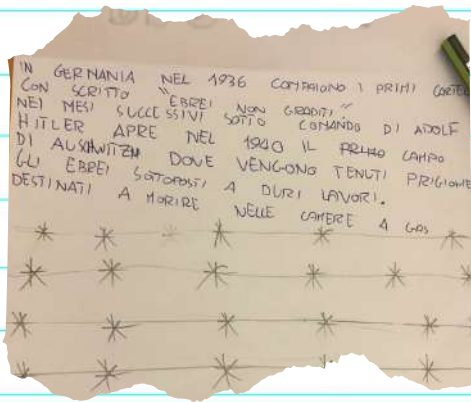 IN GERMANIA NEL 1936 COMPAIONO I PRIMI CARTEL
CON SCRITTO "EBREI NON GRADITI"
NEI MESI SUCCESSIVI SOTTO COMANDO DI ADOLF
HITLER APRE NEL 1940 IL PRIMO CAMPO
DI AUSCHWITZM DOVE VENGONO TENUTI PRIGIONIE
GLI EBREI SOTTOPOSTI A DURI LAVORI.
DESTINATI A MORIRE NELLE CAMERE A GAS